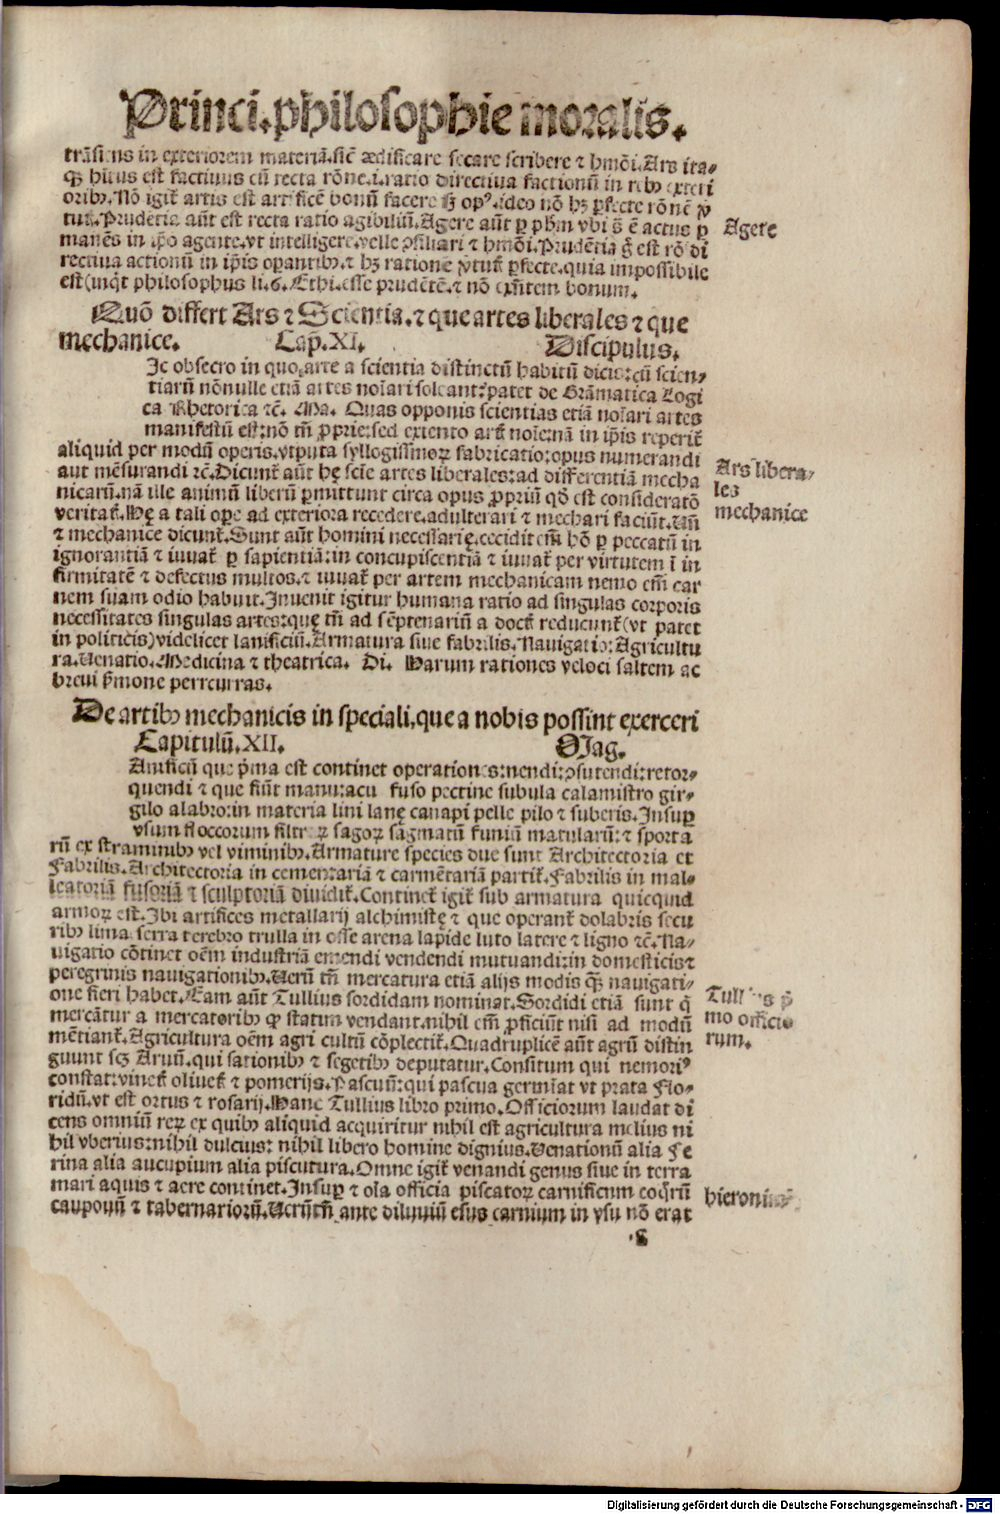 Princi. philosophie moralis.
trãsiens in exteriorem materiã. sic̃ ædificare secare scribere ⁊ hmõi. Ars ita-
est factiuus cũ recta rõne. i. ratio directiua factionũ in rebꝰ exteri
oribꝰ. Nõ igit̃ artis est artificẽ bonũ facere ideo nõ perfecte rõnẽ
Prudẽtia aũt est recta ratio agibiliũ. Agere aũt vbi actus ꝑ
manẽs in ip̃o agente. vt intelligere. velle ↄsiliari ⁊ hmõi. Prudẽtia g̃ est rõ di
rectiua actionũ in ip̃is oꝑantibꝰ. ⁊ hꝫ ratione ꝑfecte. quia impossibile
est (inq̃t philosophus li. 6. Ethi. esse prudẽtẽ. ⁊ nõ exñtem bonum.
Agere
Quõ differt Ars ⁊ Scientia. ⁊ que artes liberales ⁊ que
mechanice. Cap̃. XI. Discipulus.
Ic obsecro in quo arte a scientia distinctũ habitũ dicis: cũ scien-
tiarũ nõnulle etiã artes noĩari soleant: patet de Grãmatica Logi
ca Rhetorica ⁊c̃. Ma. Quas opponis scientias etiã noĩari artes
manifestũ est: nõ tñ ꝓprie: sed extento art̃ noĩe: nã in ip̃is reperit̃
aliquid per modũ operis. vtputa syllogissimoꝝ fabricatio: opus numerandi
aut mẽsurandi ⁊c̃. Dicunt̃ aũt hę scĩe artes liberales: ad differentiã mecha
nicarũ. nã ille animũ liberũ ꝑmittunt circa opus ꝓpriũ qđ est consideratõ
veritat̃. Hę a tali oꝑe ad exteriora recedere. adulterari ⁊ mechari faciũt. Vñ
⁊ mechanice dicunt̃. Sunt aũt homini necessarię. cecidit em̃ hõ ꝑ peccatũ in
ignorantiã ⁊ iuuat̃ ꝑ sapientiã: in concupiscentiã ⁊ iuuat̃ per virtutem ĩ in
firmitatẽ ⁊ defectus multos. ⁊ iuuat̃ per artem mechanicam nemo em̃ car
nem suam odio habuit. Inuenit igitur humana ratio ad singulas corporis
necessitates singulas artes: quę tñ ad septenariũ a doct̃ reducunt̃ (vt patet
in politicis) videlicet lanificiũ. Armatura siue fabrilis. Nauigatio: Agricultu
ra. Venatio. Medicina ⁊ theatrica. Di. Harum rationes veloci saltem ac
breui s̃mone percurras.
Ars libera-
les
mechanice
De artibꝰ mechanicis in speciali, que a nobis possint exerceri
Capitulũ. XII. Mag.
Anificiũ que p̃ma est continet operationes: nendi: ↄsutendi: retor-
quendi ⁊ que fiũt manu: acu fuso pectine subula calamistro gir-
gilo alabro: in materia lini lanę canapi pelle pilo ⁊ suberis. Insuꝑ
vsum floccorum filtroꝝ sagoꝝ sagmatũ funiũ matularũ: ⁊ sporta
rũ ex straminibꝰ vel viminibꝰ. Armature species due sunt Architectoria et
Fabrilis. Architectoria in cementariã ⁊ carmẽtariã partit̃. Fabrilis in mal-
leatoriã fusoriã ⁊ sculptoriã diuidit̃. Continet̃ igit̃ sub armatura quicquid
armoꝝ est. Ibi artifices metallarij alchimistę ⁊ que operant̃ dolabris secu
ribꝰ lima serra terebro trulla in osse arena lapide luto latere ⁊ ligno ⁊c̃. Na-
uigatio cõtinet oẽm industriã emendi vendendi mutuandi: in domesticis ⁊
peregrinis nauigationibꝰ. Verũ tñ mercatura etiã alijs modis nauigati-
one fieri habet. Eam aũt Tullius sordidam nominat. Sordidi etiã sunt q̃
mercãtur a mercatoribꝰ statim vendant. nihil em̃ ꝓficiũt nisi ad modũ
mẽtiant̃. Agricultura oẽm agri cultũ cõplectit̃. Quadruplicẽ aũt agrũ distin
guunt scꝫ Aruũ. qui sationibꝰ ⁊ segetibꝰ deputatur. Consitum qui nemoriꝰ
constat: vinet̃ oliuet̃ ⁊ pomerijs. Pascuũ: qui pascua germĩat vt prata Flo-
ridũ. vt est ortus ⁊ rosarij. Hanc Tullius libro primo. Officiorum laudat di
cens omniũ reꝝ ex quibꝰ aliquid acquiritur nihil est agricultura melius ni
hil vberius: nihil dulcius: nihil libero homine dignius. Venationũ alia Fe
rina alia aucupium alia piscatura. Omne igit̃ venandi genus siue in terra
mari aquis ⁊ aere continet. Insuꝑ ⁊ oĩa officia piscatoꝝ carnificum coq̃rũ
cauponũ ⁊ tabernariorũ. Verũtñ ante diluuiũ esus carnium in vsu nõ erat
Tullius p̃
mo officio
rum.
hieronim